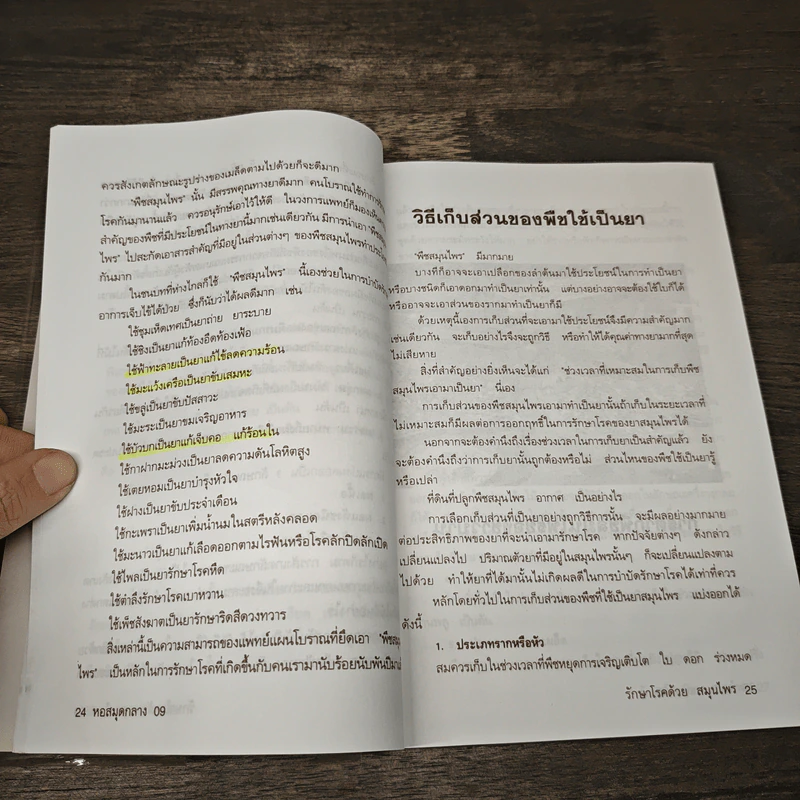 ควรสังเกตลักษณะรูปร่างของเมล็ดตามไปด้วยก็จะดีมาก
"พืชสมุนไพร" นั้น มีสรรพคุณทางยาดีมาก คนโบราณใช้ทำการ
โรคกันมานานแล้ว ควรอนุรักษ์เอาไว้ให้ดี ในวงการแพทย์ก็มองเห็น
สำคัญของพืชที่มีประโยชน์ในทางยานี้มากเช่นเดียวกัน มีการนำเอา "พืชสมุน
ไพร" ไปสะกัดเอาสารสำคัญที่มีอยู่ในส่วนต่างๆ ของพืชสมุนไพรทำประโยชน์
กันมาก
ในชนบทที่ห่างไกลก็ใช้ "พืชสมุนไพร" นี้เองช่วยในการบำบัด
อาการเจ็บไข้ได้ป่วย ซึ่งก็นับว่าได้ผลดีมาก เช่น
ใช้ชุมเห็ดเทศเป็นยาถ่าย ยาระบาย
ใช้ขิงเป็นยาแก้ท้องอืดท้องเฟ้อ
ใช้ฟ้าทะลายเป็นยาแก้ไข้ลดความร้อน
ใช้มะแว้งเครือเป็นยาขับเสมหะ
ใช้ขลู่เป็นยาขับปัสสาวะ
ใช้มะระเป็นยาขมเจริญอาหาร
ใช้บัวบกเป็นยาแก้เจ็บคอ แก้ร้อนใน
ใช้กาฝากมะม่วงเป็นยาลดความดันโลหิตสูง
ใช้เตยหอมเป็นยาบำรุงหัวใจ
ใช้ฝางเป็นยาขับประจำเดือน
ใช้กะเพราเป็นยาเพิ่มน้ำนมในสตรีหลังคลอด
ใช้มะนาวเป็นยาแก้เลือดออกตามไรฟันหรือโรคลักปิดลักเปิด
ใช้ไพลเป็นยารักษาโรคหืด
ใช้ตำลึงรักษาโรคเบาหวาน
ใช้เพ็ชสังฆาตเป็นยารักษาริดสีดวงทวาร
สิ่งเหล่านี้เป็นความสามารถของแพทย์แผนโบราณที่ยึดเอา "พืชสมุน
ไพร" เป็นหลักในการรักษาโรคที่เกิดขึ้นกับคนเรามานับร้อยนับพันปีมา
24 หอสมุดกลาง 09
วิธีเก็บส่วนของพืชใช้เป็นยา
"พืชสมุนไพร" มีมากมาย
บางทีก็อาจจะเอาเปลือกของลำต้นมาใช้ประโยชน์ในการทำเป็นยา
หรือบางชนิดก็เอาดอกมาทำเป็นยาเท่านั้น แต่บางอย่างอาจจะต้องใช้ใบก็ได้
หรืออาจจะเอาส่วนของรากมาทำเป็นยาก็มี
ด้วยเหตุนี้เองการเก็บส่วนที่จะเอามาใช้ประโยชน์จึงมีความสำคัญมาก
เช่นเดียวกัน จะเก็บอย่างไรจึงจะถูกวิธี หรือทำให้ได้คุณค่าทางยามากที่สุด
ไม่เสียหาย
สิ่งที่สำคัญอย่างยิ่งเห็นจะได้แก่ "ช่วงเวลาที่เหมาะสมในการเก็บพืช
สมุนไพรเอามาเป็นยา" นี่เอง
การเก็บส่วนของพืชสมุนไพรเอามาทำเป็นยานั้นถ้าเก็บในระยะเวลาที่
ไม่เหมาะสมก็มีผลต่อการออกฤทธิ์ในการรักษาโรคของยาสมุนไพรได้
นอกจากจะต้องคำนึงถึงเรื่องช่วงเวลาในการเก็บยาเป็นสำคัญแล้ว ยัง
จะต้องคำนึงถึงว่าการเก็บยานั้นถูกต้องหรือไม่ ส่วนไหนของพืชใช้เป็นยารู้
หรือเปล่า
ที่ดินที่ปลูกพืชสมุนไพร อากาศ เป็นอย่างไร
การเลือกเก็บส่วนที่เป็นยาอย่างถูกวิธีการนั้น จะมีผลอย่างมากมาย
ต่อประสิทธิภาพของยาที่จะนำเอามารักษาโรค หากปัจจัยต่างๆ ดังกล่าว
เปลี่ยนแปลงไป ปริมาณตัวยาที่มีอยู่ในสมุนไพรนั้นๆ ก็จะเปลี่ยนแปลงตาม
ไปด้วย ทำให้ยาที่ได้มานั้นไม่เกิดผลดีในการบำบัดรักษาโรคได้เท่าที่ควร
หลักโดยทั่วไปในการเก็บส่วนของพืชที่ใช้เป็นยาสมุนไพร แบ่งออกได้
ดังนี้
1. ประเภทรากหรือหัว
สมควรเก็บในช่วงเวลาที่พืชหยุดการเจริญเติบโต ใบ ดอก ร่วงหมด
รักษาโรคด้วย สมุนไพร 25